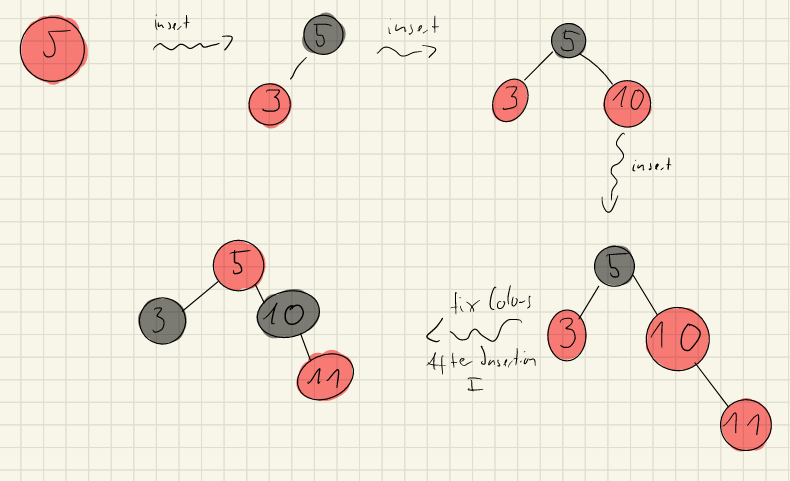 5
insert
5
3
insert
5
3
10
insert
5
3
10
11
fix Colors
After Insertion
I
5
3
10
11